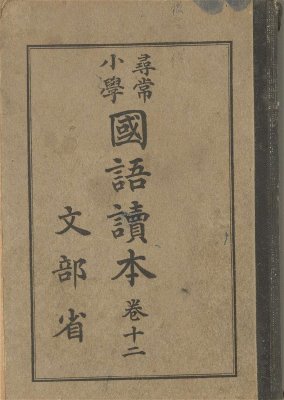 尋常
小學
國語讀本
卷十二
文部省